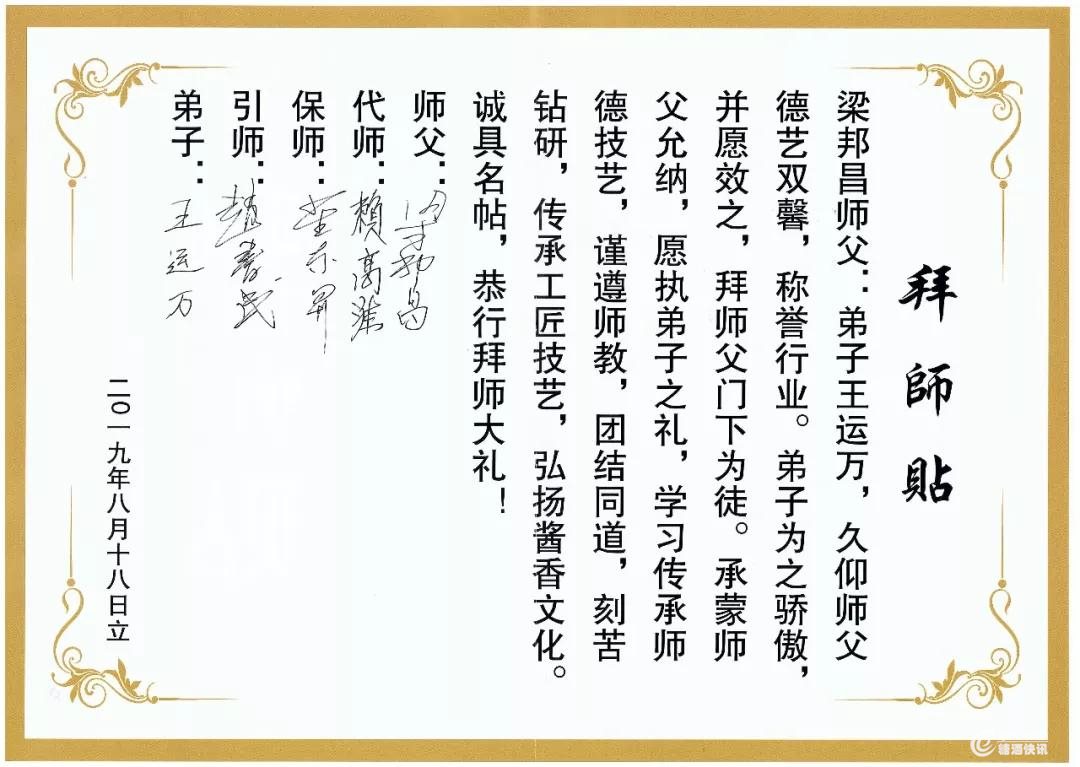 拜師貼
梁邦昌师父：弟子王运万，久仰师父
德艺双馨，称誉行业。弟子为之骄傲，
并愿效之，拜师父门下为徒。承蒙师
父允纳，愿执弟子之礼，学习传承师
德技艺，谨遵师教，团结同道，刻苦
钻研，传承工匠技艺，弘扬酱香文化。
诚具名帖，恭行拜师大礼！
师父：梁邦昌
代师：赖高淮
保师：
引师：
弟子：王运万
二〇一九年八月十八日立
糖酒快讯